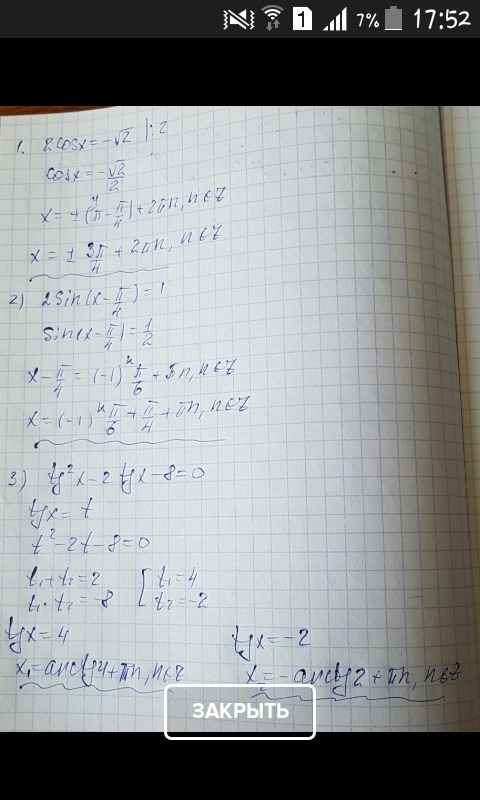 1 7% 17:52
1. 2cosx = -√2 |:2
cosx = -√2/2
x = ±(π - π/4) + 2πn, n∈Z
x = ± 3π/4 + 2πn, n∈Z
2) 2sin(x - π/4) = 1
sin(x - π/4) = 1/2
x - π/4 = (-1)ⁿ π/6 + πn, n∈Z
x = (-1)ⁿ π/6 + π/4 + πn, n∈Z
3) tg²x - 2tgx - 8 = 0
tgx = t
t² - 2t - 8 = 0
t₁ + t₂ = 2 [ t₁ = 4
t₁ · t₂ = -8 [ t₂ = -2
tgx = 4 tgx = -2
x₁ = arctg4 + πn, n∈Z x₂ = -arctg2 + πn, n∈Z
ЗАКРЫТЬ